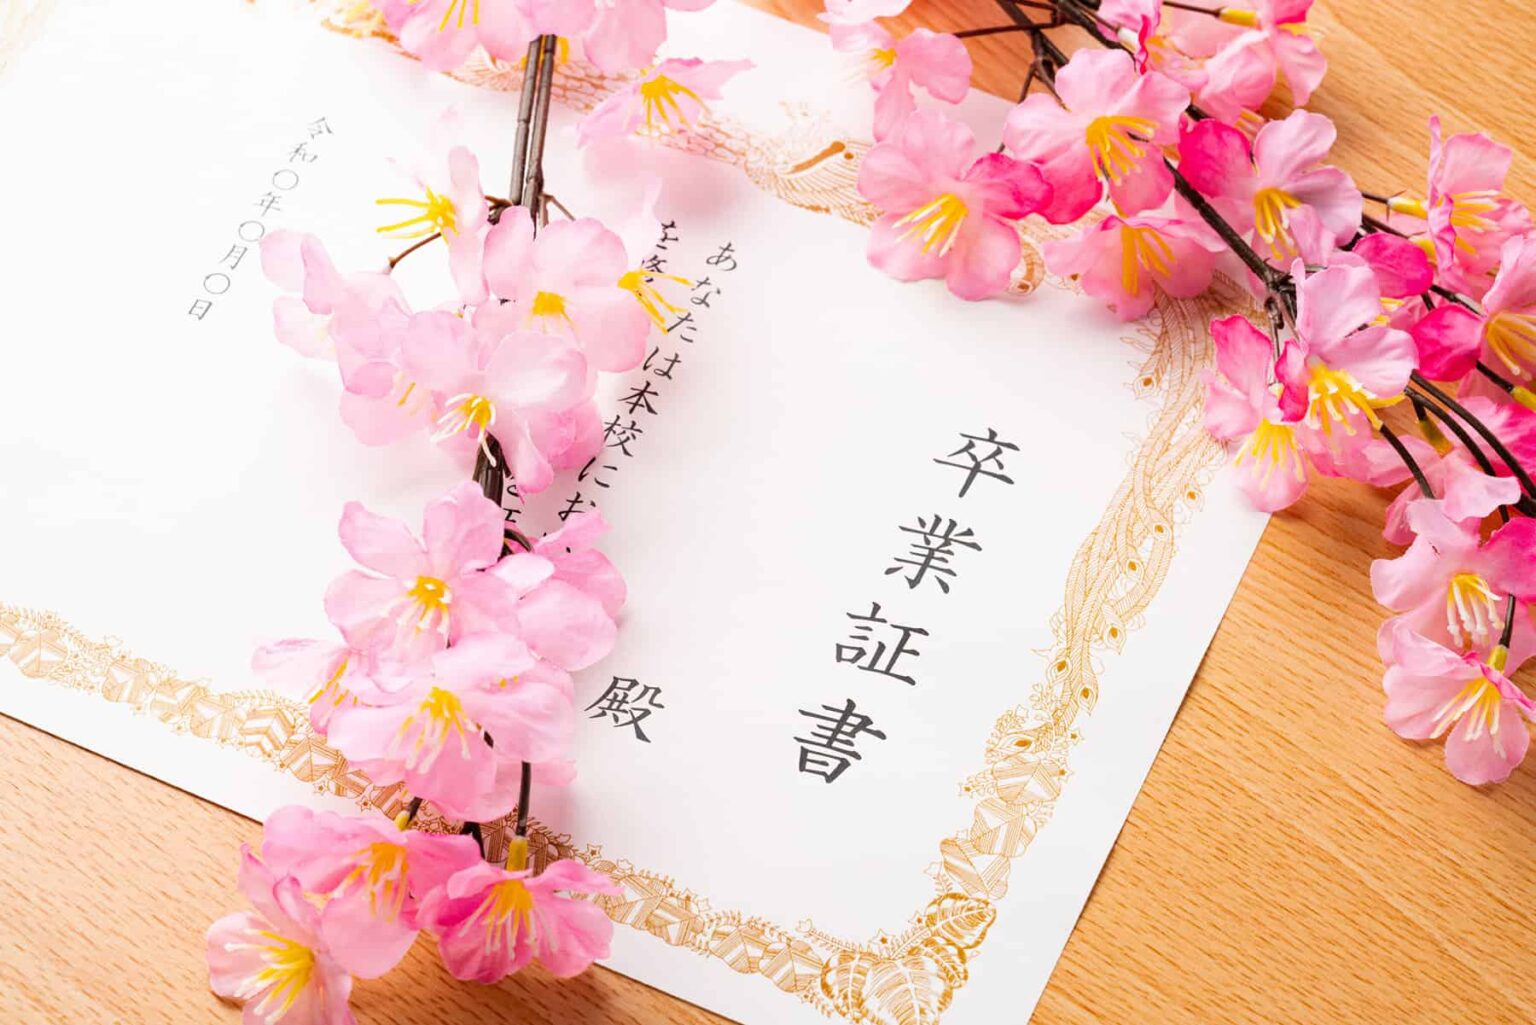 卒業証書
殿
あなたは本校にお
を
令和〇年〇月〇日